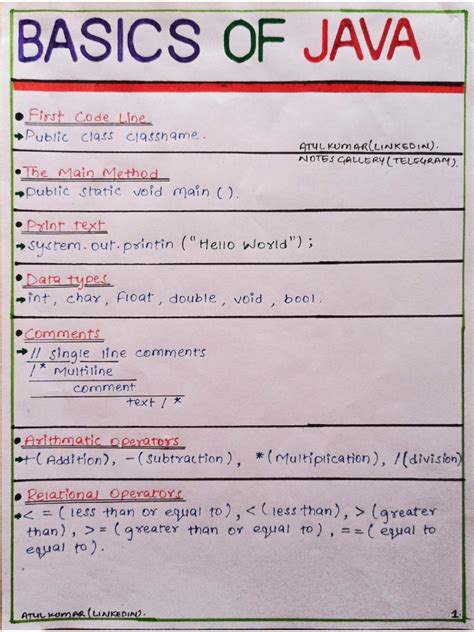 BASICS OF JAVA
First Code Line
Public class classname.
ATUL KUMAR (LINKEDIN).
NOTES GALLERY (TELEGRAM).
The Main Method
Public static void main ().
Print text
System.out.printin ("Hello World");
Data types
int, char, float, double, void, bool.
Comments
// single line comments
/* Multiline
comment
text / *
Arithmatic operators
+ (Addition), - (Subtraction), * (Multiplication), / (division)
Relational Operators
< = (less than or equal to), < (less than), > (greater
than), > = (greater than or equal to), == (equal to
equal to).
ATUL KUMAR (LINKEDIN).
1.